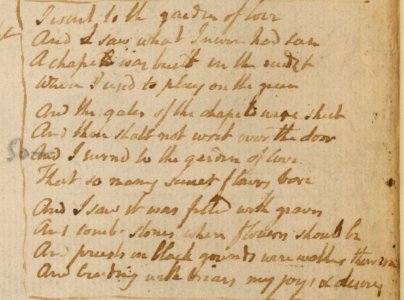 I went to the garden of love
And I saw what I never had seen
A chapel was built in the midst
Where I used to play on the green
And the gates of the chapel were shut
And thou shalt not writ over the door
And I turnd to the garden of love
That so many sweet flowers bore
And I saw it was filled with graves
And tomb-stones where flowers should be
And priests in black gounds were walking their rounds
And binding with briars my joys & desires